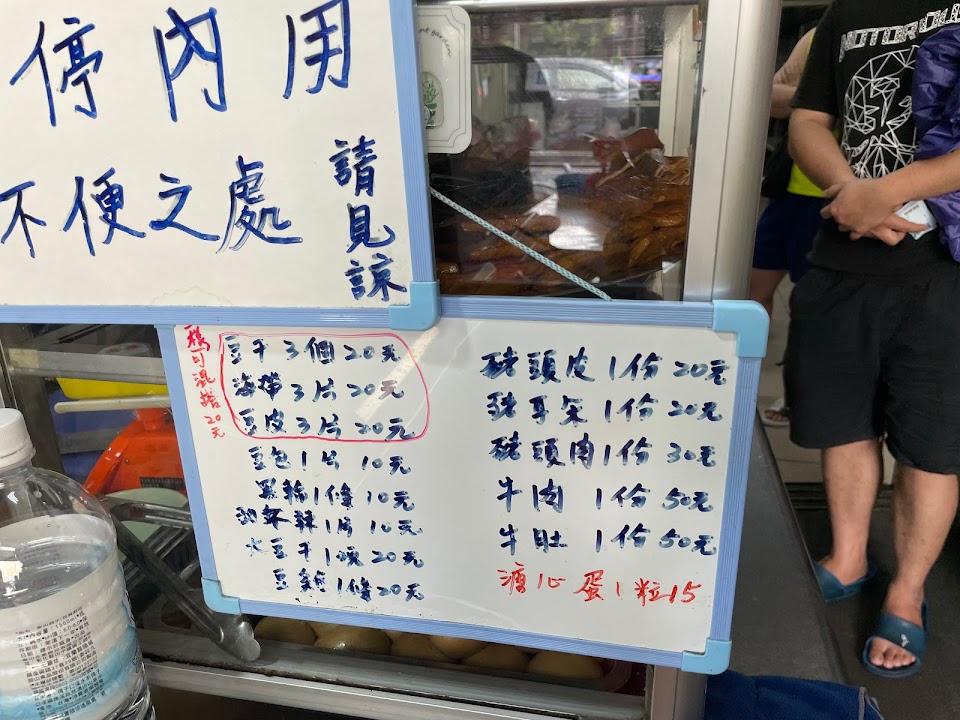 停內用
不便之處
請見諒
豆干3個20元
海帶3片20元
豆皮3片20元
豆包1片10元
黑輪1條10元
甜不辣1片10元
大豆干1塊20元
豆雞1條20元
豬頭皮1份20元
豬耳朵1份20元
豬頭肉1份30元
牛肉1份50元
牛肚1份50元
溏心蛋1粒15
MOTOROLA